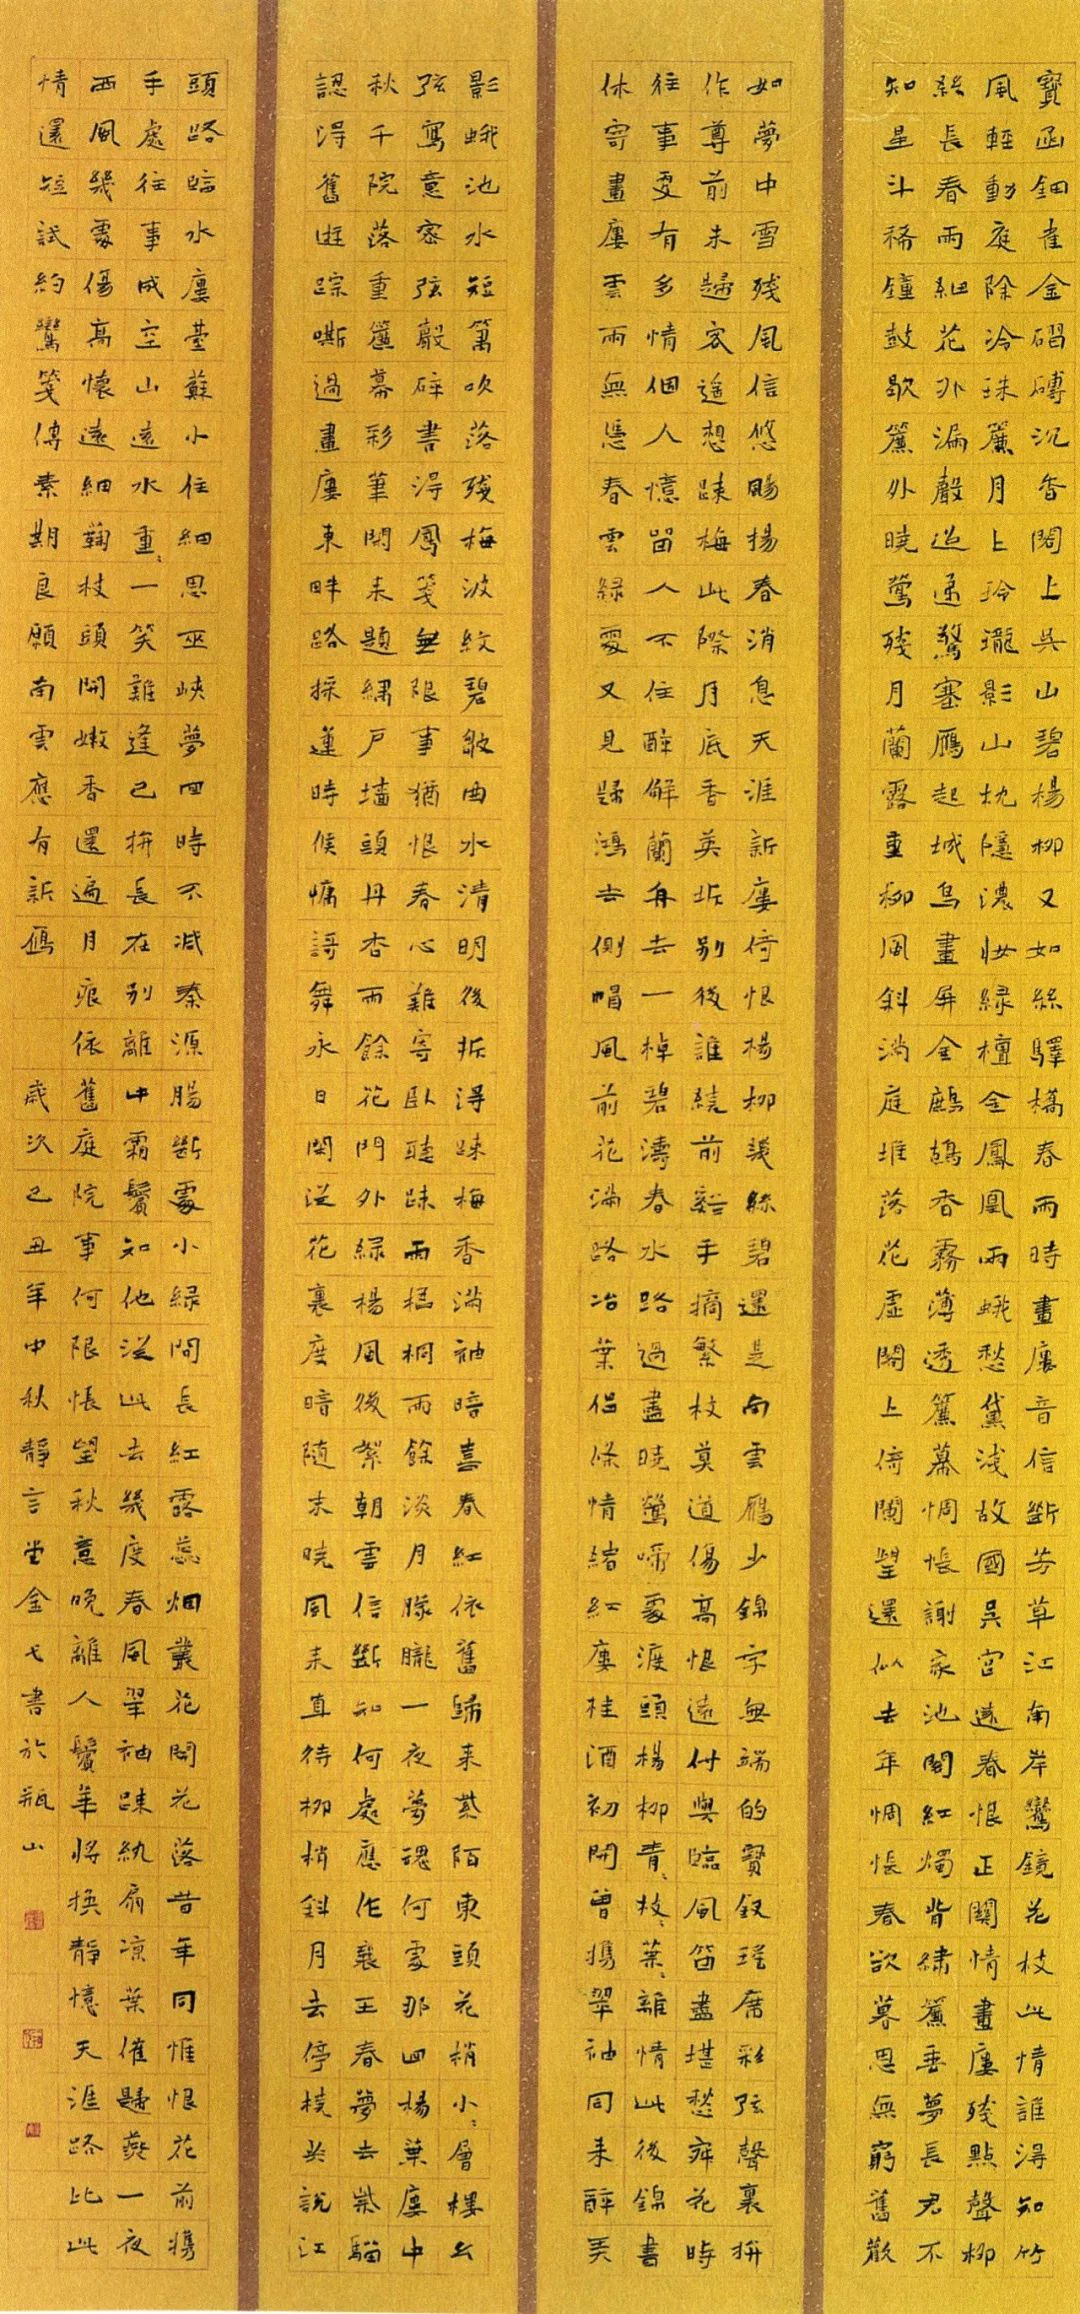 寶函鈿雀金鸂鶒沉香閣上吳山碧楊柳又如絲驛橋春雨時畫樓音信斷芳草江南岸鸞鏡花枝此情誰得知竹
風輕動庭除冷珠簾月上玲瓏影山枕隱濃妝綠檀金鳳凰兩蛾愁黛淺故國吳宮遠春恨正關情畫樓殘點聲柳
絲長春雨細花外漏聲迢遞驚塞雁起城烏畫屏金鷓鴣香霧薄透簾幕惆悵謝家池閣紅燭背繡簾垂夢長君不
知星斗稀鐘鼓歇簾外曉鶯殘月蘭露重柳風斜滿庭堆落花虛閣上倚闌望還似去年惆悵春欲暮思無窮舊歡
如夢中雪殘風信悠颺揚春消息天涯新樓倚恨楊柳幾絲碧還是南雲雁少錦字無端的寶釵瑤席彩弦聲裏拚
作尊前未歸客遙想疎梅此際月底香英坼別後誰繞前谿手摘繁枝莫道傷高恨遠付與臨風笛盡堪愁寂花時
往事更有多情個人憶留人不住醉解蘭舟去一棹碧濤春水路過盡曉鶯啼處渡頭楊柳青青枝枝葉葉離情此後錦書
休寄畫樓雲雨無憑春雲綠處又見歸鴻去側帽風前花滿路冶葉倡條情緒紅樓桂酒初開曾攜翠袖同來醉弄
影蛾池水短簫吹落殘梅波紋碧皺曲水清明後折得疎梅香滿袖暗喜春紅依舊歸來紫陌東頭花梢小小層樓幺
弦寫意密弦聲碎書得鳳箋無限事猶恨春心難寄臥聽疎雨梧桐雨餘淡月朦朧一夜夢魂何處那回楊葉樓中
秋千院落重簾幕彩筆閒來題繡戶墻頭丹杏雨餘花門外綠楊風後絮朝雲信斷知何處應作襄王春夢去紫騮
認得舊遊踪嘶過畫樓東畔路採蓮時候慵謌舞永日閑從花裏度暗隨末曉風來直待柳梢斜月去停橈共說江
頭路臨水樓臺蘇小住細思巫峽夢回時不減秦源腸斷處小綠間長紅露蕊烟叢花開花落昔年同惟恨花前攜
手處往事成空山遠水重重一笑難逢已拚長在別離中霜鬢知他從此去幾度春風翠袖疎紈扇涼葉催歸燕一夜
西風幾處傷高懷遠細菊枝頭開嫩香還遍月痕依舊庭院事何限悵望秋意晚離人鬢華將換靜憶天涯路比此
情還短試約鸞箋傳素期良願南雲應有新雁 歲次己丑年中秋靜言堂金弋書於瓶山